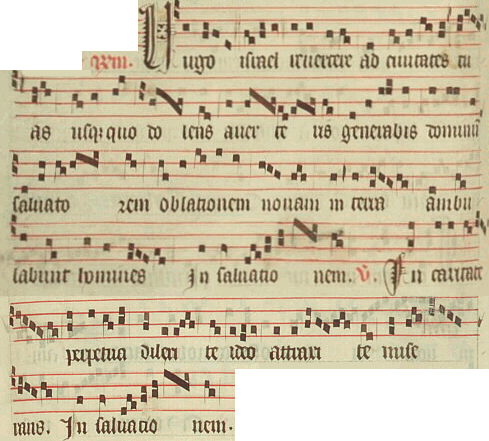 Rem. Virgo israel revertere ad civitates tu
as usq; quo do lens aver te ris generabis dominu
salvato rem oblationem novam in terra ambu
labunt homines In salvatio nem. V. In caritate
perpetua dilexi te ideo attraxi te mise
rans. In salvatio nem.